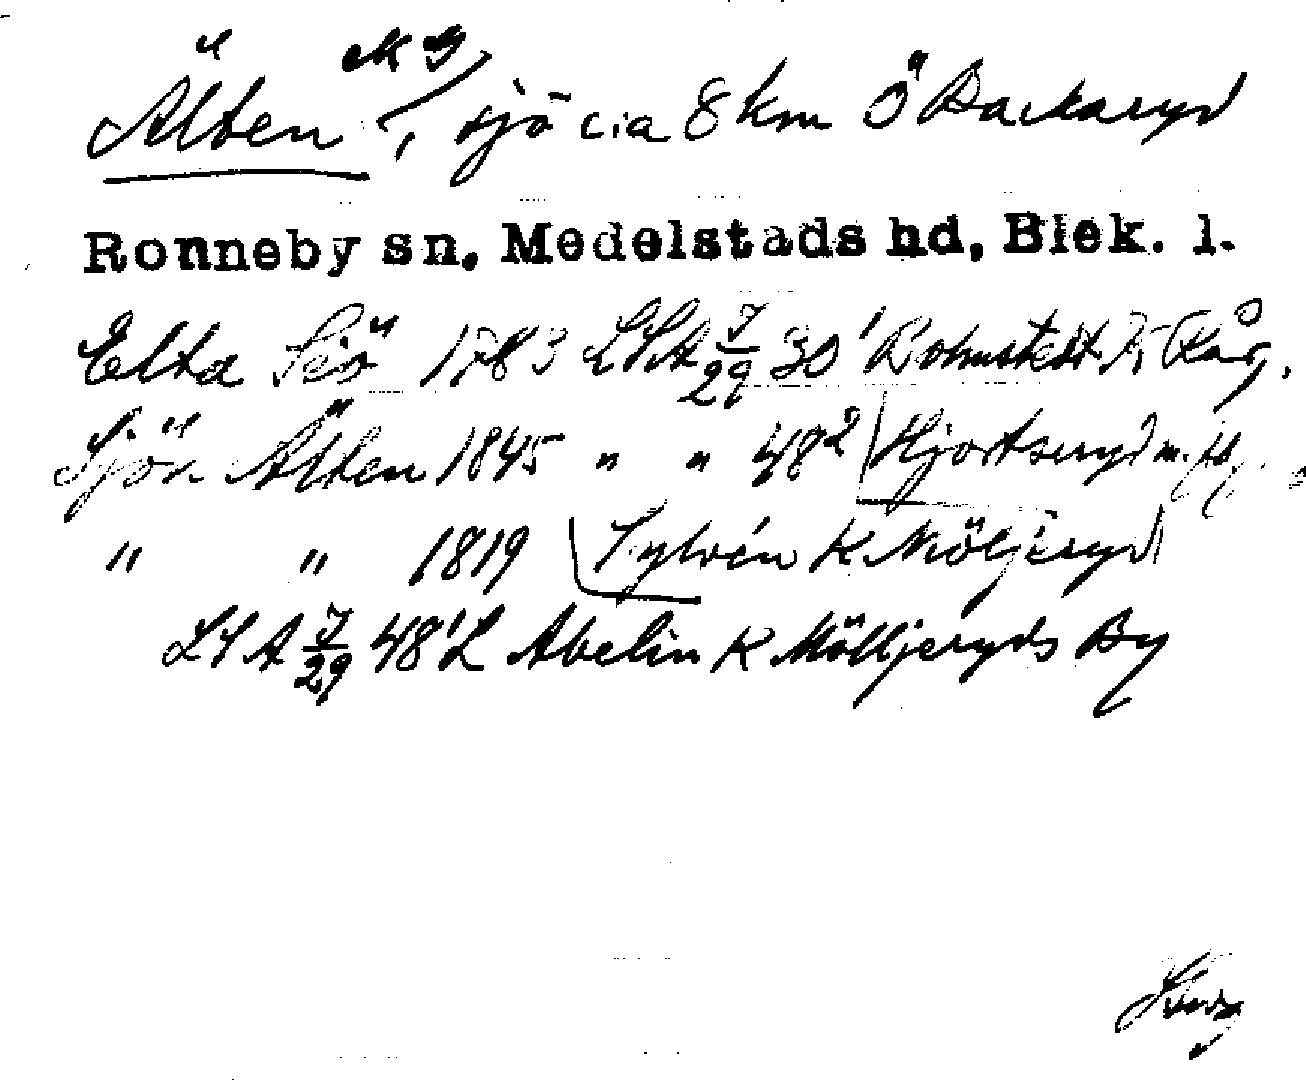 Älten, sjö c:a 8 km Ö Backaryd
Ronneby sn, Medelstads hd, Blek. l.
Elta Siö 1783 LSA J/29 30¹ Bohnstedt K Råg.
Sjön Älten 1845 " " 48² Hjortseryd m. fl.
" " 1819 Sylvén K Möljeryd
LSA J/29 48¹ L Abelin K Mölljeryds By